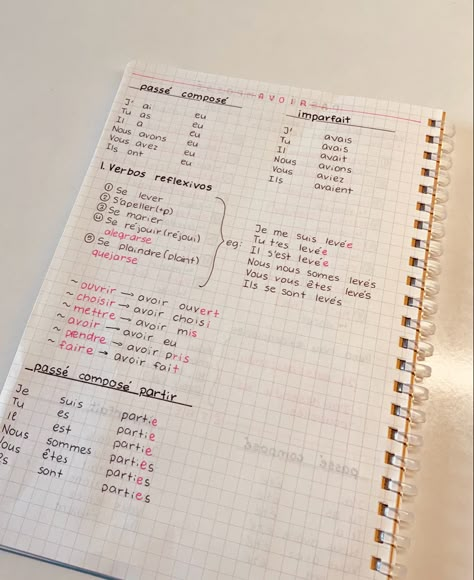 AVOIR
passé composé
J' ai eu
Tu as eu
Il a eu
Nous avons eu
Vous avez eu
Ils ont eu
imparfait
J' avais
Tu avais
Il avait
Nous avions
Vous aviez
Ils avaient
1. Verbos reflexivos
① Se lever
② S'apeller (+p)
③ Se marier
④ Se réjouir (réjoui)
alegrarse
⑤ Se plaindre (plaint)
quejarse
eg:
Je me suis levée
Tu t'es levée
Il s'est levée
Nous nous somes levés
Vous vous êtes levés
Ils se sont levés
~ ouvrir → avoir ouvert
~ choisir → avoir choisi
~ mettre → avoir mis
~ avoir → avoir eu
~ prendre → avoir pris
~ faire → avoir fait
passé composé partir
Je suis partie
Tu es partie
il est partie
Nous sommes parties
Vous êtes parties
sont parties